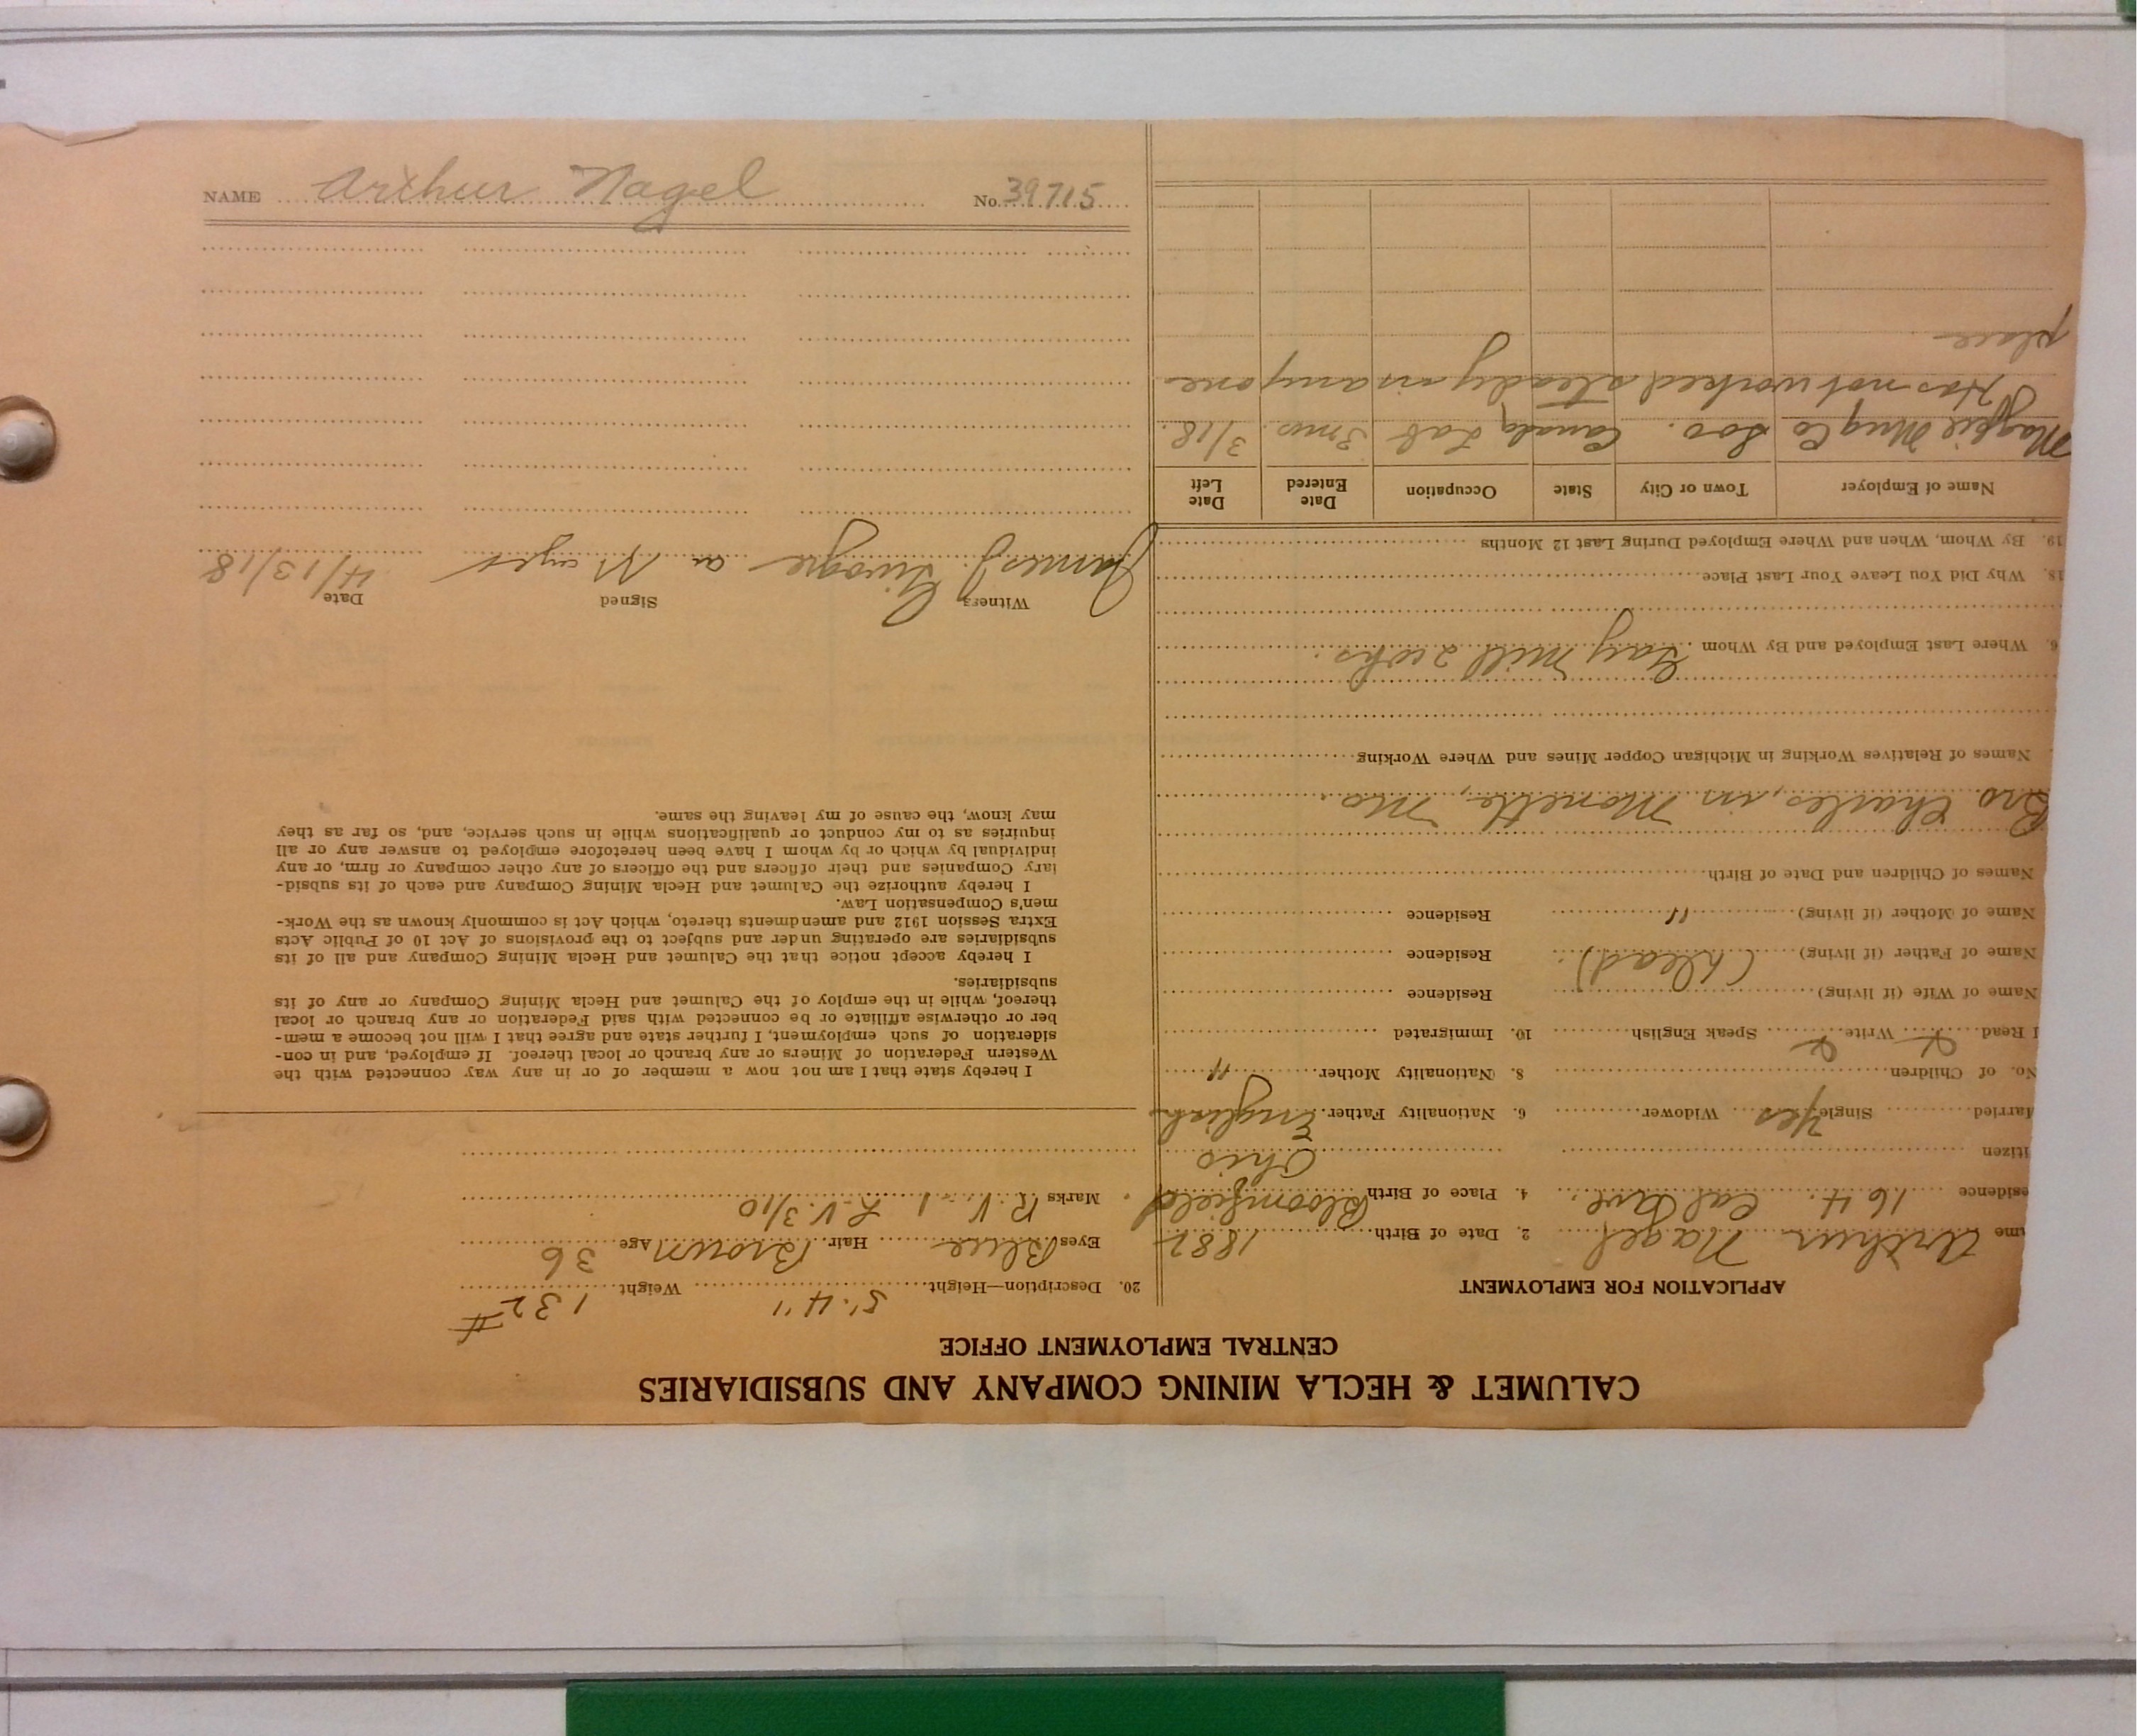 CALUMET & HECLA MINING COMPANY AND SUBSIDIARIES
CENTRAL EMPLOYMENT OFFICE
APPLICATION FOR EMPLOYMENT
ame Arthur Nagel 2. Date of Birth 1882
esidence 164 Cal Ave. 4. Place of Birth Bloomfield
itizen Ohio
arried Single Yes Widower 6. Nationality Father English
No. of Children 8. Nationality Mother "
I Read Write Speak English 10. Immigrated
Name of Wife (if living) Residence
Name of Father (if living) (Dead) Residence
Name of Mother (if living) " Residence
Names of Children and Date of Birth
Bro Charles, in Monette, Mo.
Names of Relatives Working in Michigan Copper Mines and Where Working
6. Where Last Employed and By Whom Gay Mill 2 wks.
18. Why Did You Leave Your Last Place
19. By Whom, When and Where Employed During Last 12 Months
Name of Employer Town or City State Occupation Date Entered Date Left
Magpie Mng Co Soo. Canada Lab 3 mos. 3/18.
Has not worked steady in any one
place
20. Description—Height 5'.4" Weight 132#
Eyes Blue Hair Brown Age 36
Marks R.V. 1 L.V. 3/10
I hereby state that I am not now a member of or in any way connected with the
Western Federation of Miners or any branch or local thereof. If employed, and in con-
sideration of such employment, I further state and agree that I will not become a mem-
ber or otherwise affiliate or be connected with said Federation or any branch or local
thereof, while in the employ of the Calumet and Hecla Mining Company or any of its
subsidiaries.
I hereby accept notice that the Calumet and Hecla Mining Company and all of its
subsidiaries are operating under and subject to the provisions of Act 10 of Public Acts
Extra Session 1912 and amendments thereto, which Act is commonly known as the Work-
men's Compensation Law.
I hereby authorize the Calumet and Hecla Mining Company and each of its subsid-
iary Companies and their officers and the officers of any other company or firm, or any
individual by which or by whom I have been heretofore employed to answer any or all
inquiries as to my conduct or qualifications while in such service, and, so far as they
may know, the cause of my leaving the same.
Witness Signed Date
James J. a 4/13/18
NAME Arthur Nagel No. 39715